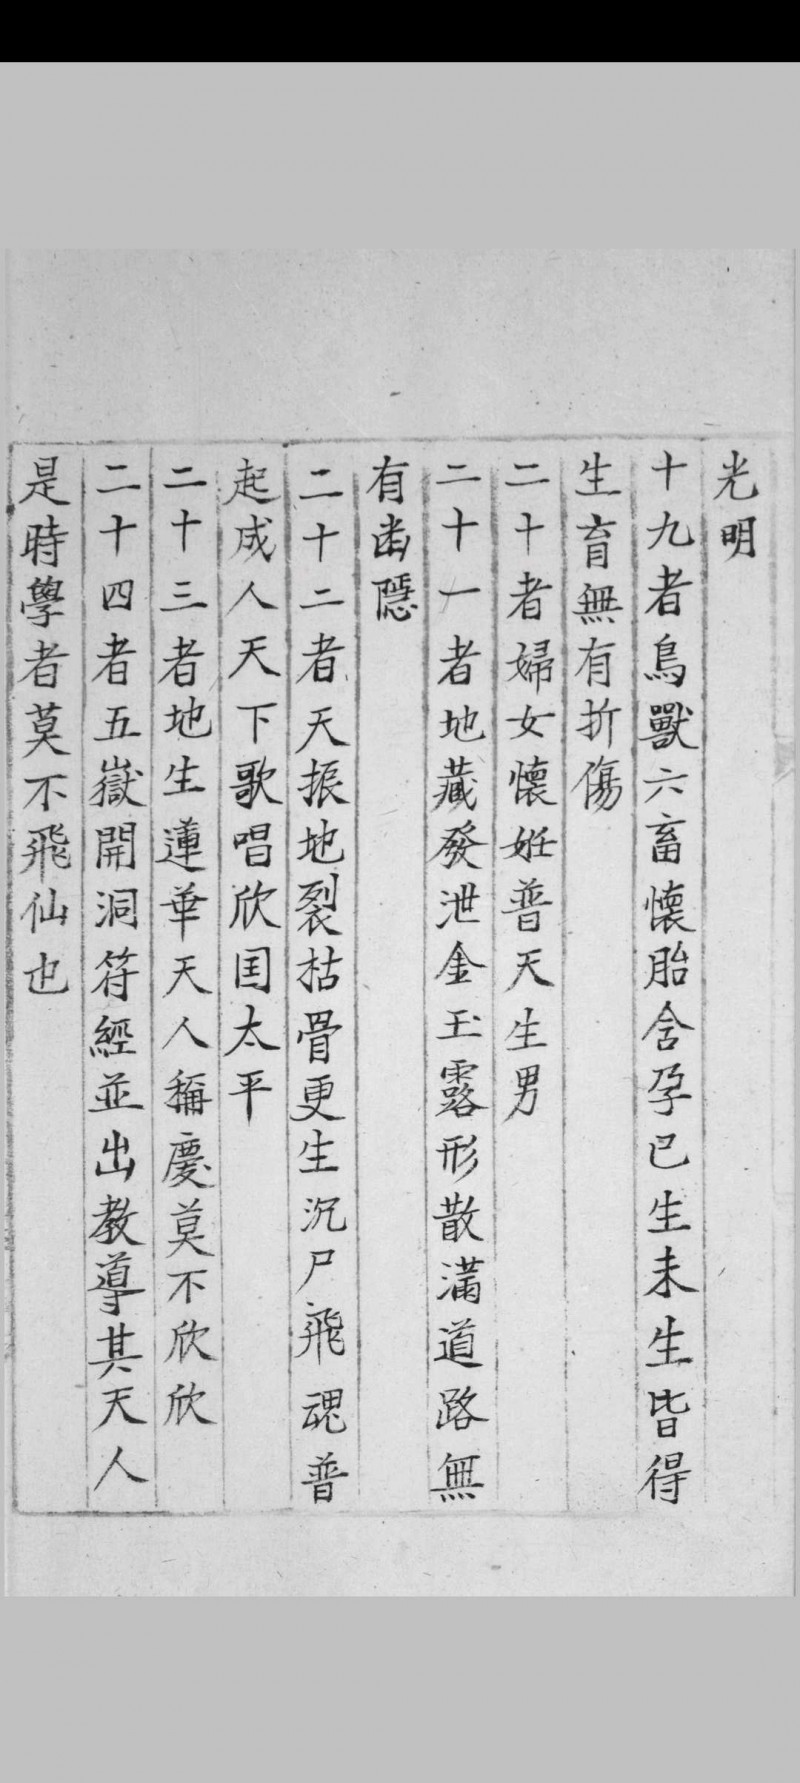 光明
十九者鳥獸六畜懷胎含孕已生未生皆得
生育無有折傷
二十者婦女懷姙普天生男
二十一者地藏發泄金玉露形散滿道路無
有幽隱
二十二者天振地裂枯骨更生沉尸飛魂普
起成人天下歌唱欣国太平
二十三者地生蓮華天人稱慶莫不欣欣
二十四者五嶽開洞符經並出教導其天人
是時學者莫不飛仙也